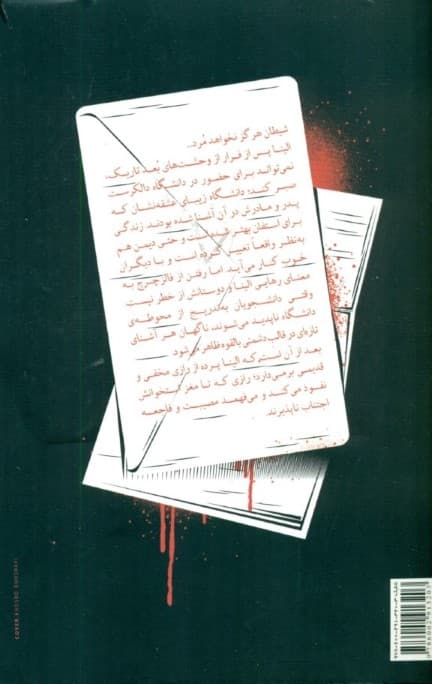 شیطان هرگز نخواهد مُرد...
النا پس از فرار از وحشت‌های بُعد تاریک،
نمی‌تواند برای حضور در دانشگاه دالکرست
صبر کند؛ دانشگاه زیبای عشقه‌نشان که
پدر و مادرش در آن آشنا شده بودند. زندگی
برای استفان بهتر شده است و حتی دیمن هم
به‌نظر واقعاً تغییر کرده است و با دیگران
خوب کنار می‌آید. اما رفتن از فالز‌چرچ به
معنای رهایی الینا و دوستانش از خطر نیست
وقتی دانشجویان به‌تدریج از محوطه‌ی
دانشگاه ناپدید می‌شوند، ناگهان هر آشنای
تازه‌ای در قالب دشمنی بالقوه ظاهر می‌شود
بعد از آن است که الینا پرده از رازی مخفی و
قدیمی برمی‌دارد؛ رازی که تا مغز استخوانش
نفوذ می‌کند و می‌فهمد مصیبت و فاجعه
اجتناب ناپذیرند.
COVER